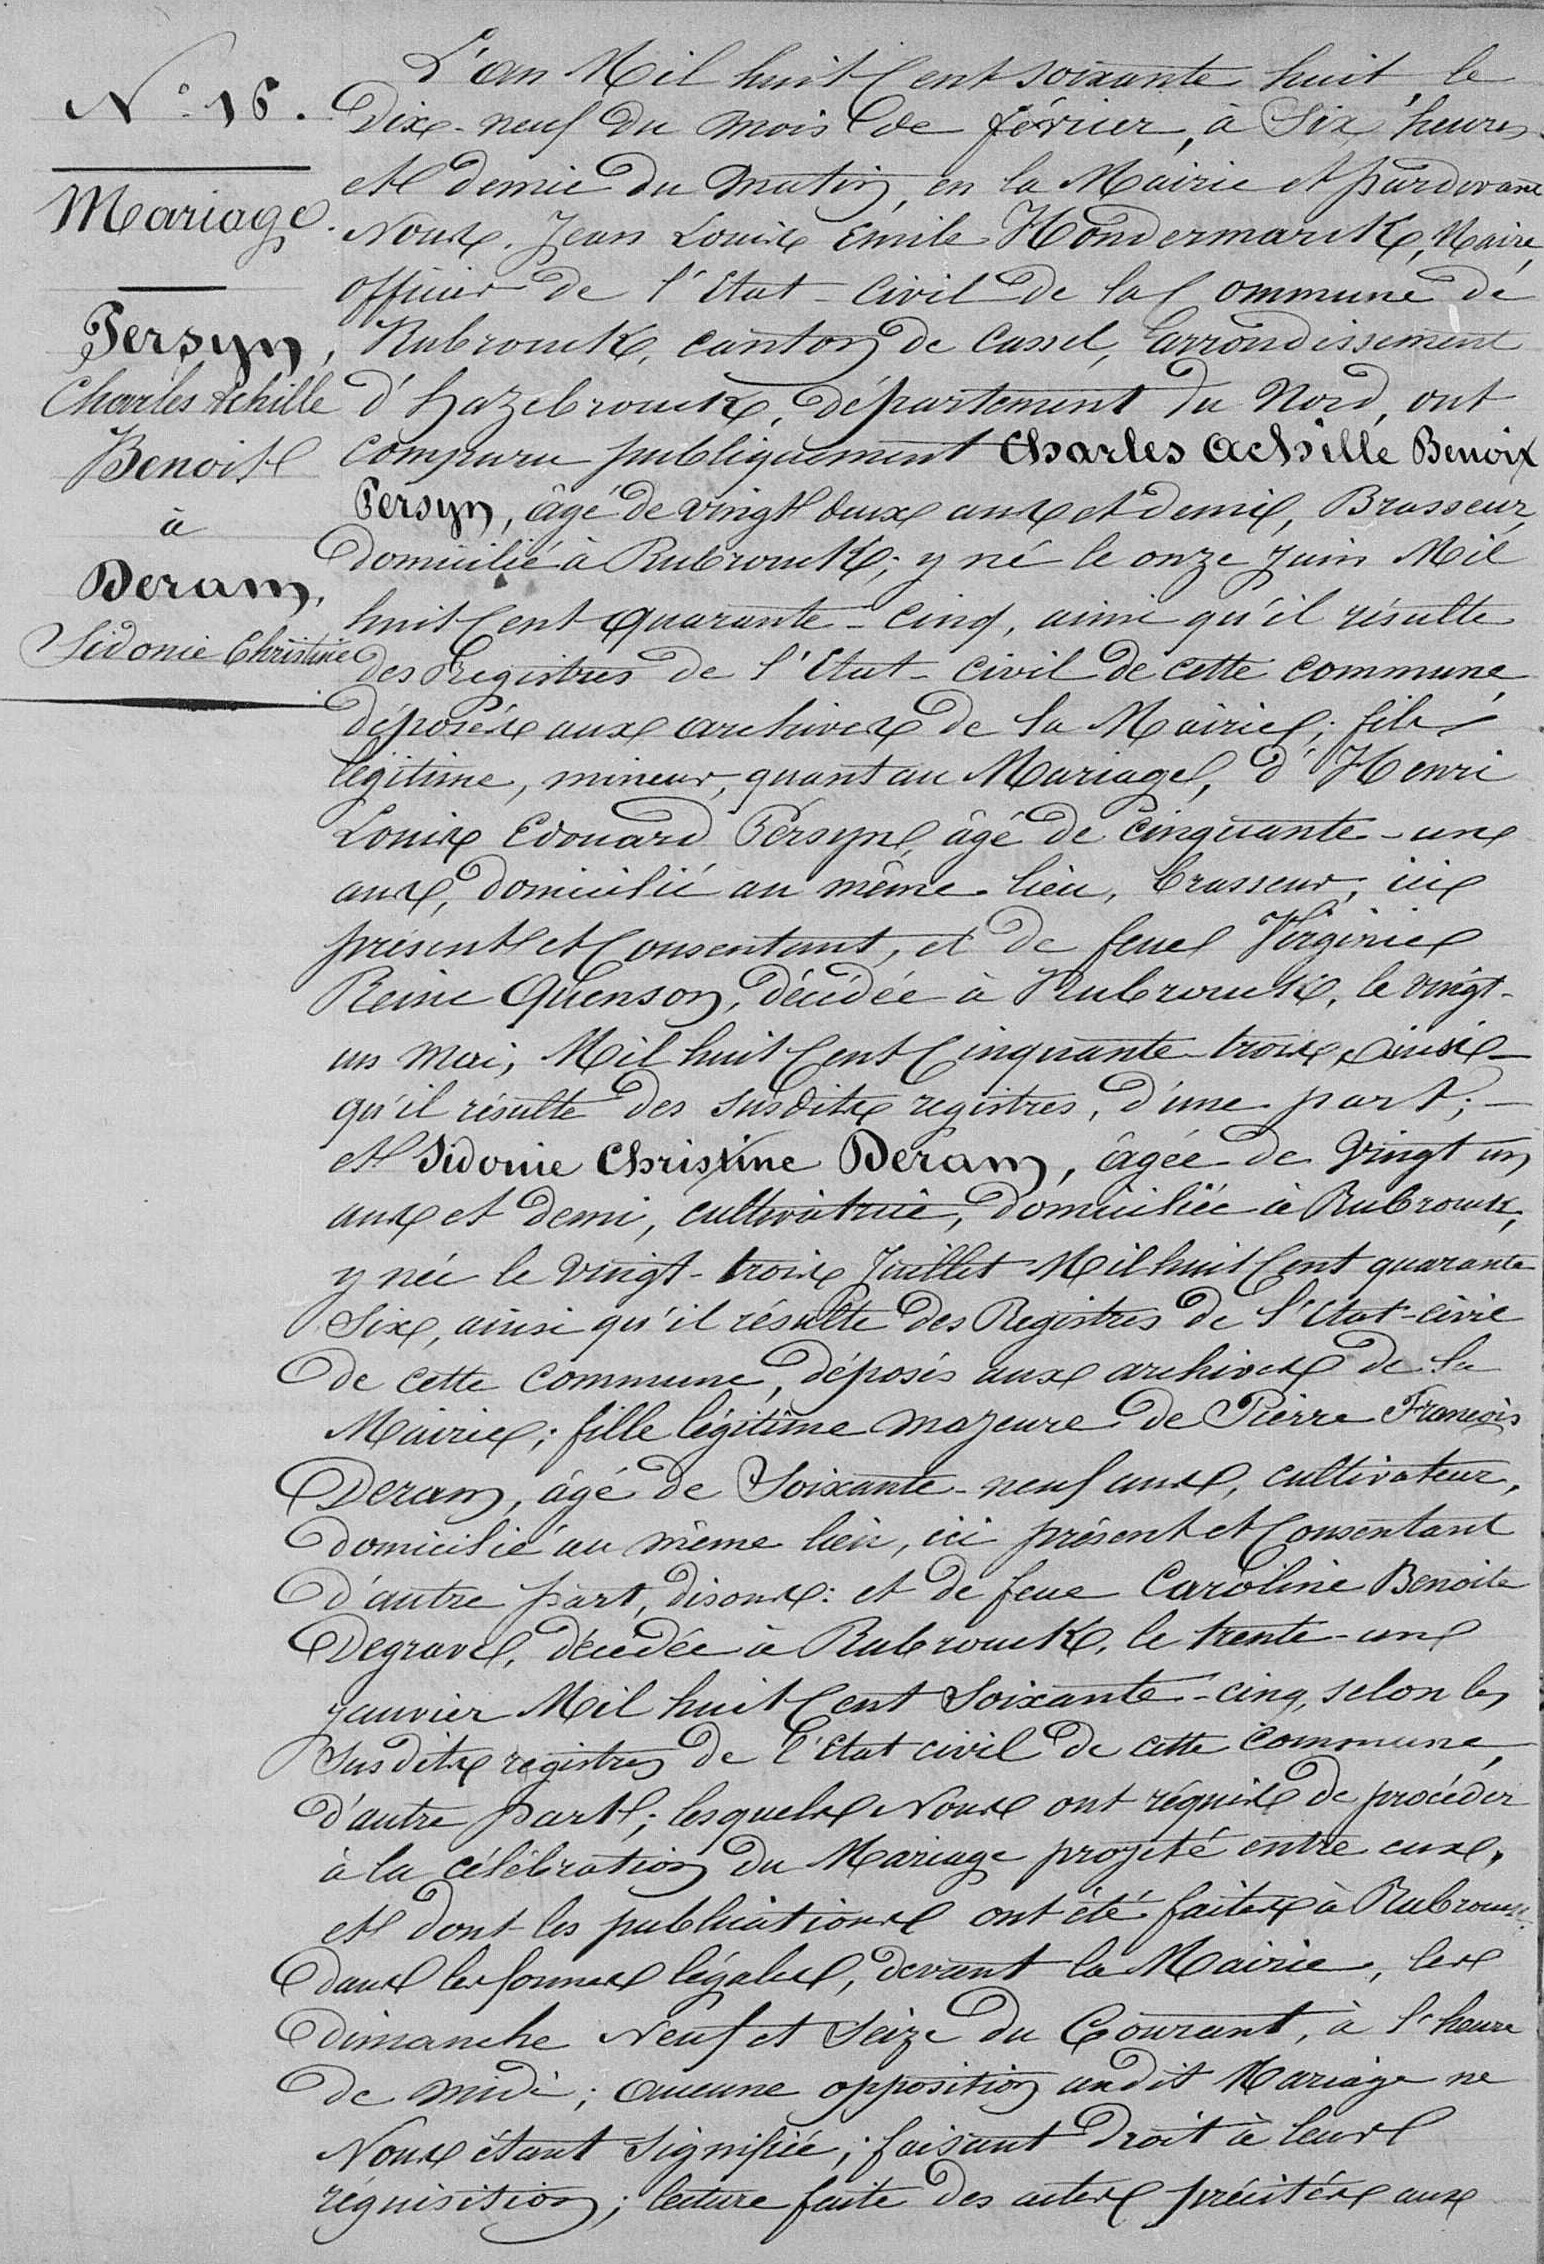 N° 16.
Mariage.
Persyn,
Charles Achille
Benoit
à
Deram,
Sidonie Christine
L'an Mil huit Cent soixante huit, le
Dix-neuf du mois de février, à Six heures
et demie du matin, en la Mairie et pardevant
Nous, Jean Louis Emile Hondermarck, Maire,
officier de l'Etat Civil de la Commune de
Rubrouck, canton de Cassel, arrondissement
d'hazebrouck, département du Nord, ont
comparu publiquement Charles Achille Benoit
Persyn, âgé de vingt deux ans et demi, Brasseur,
domicilié à Rubrouck; y né le onze Juin Mil
huit Cent quarante-cinq, ainsi qu'il résulte
des Registres de l'Etat-civil de cette commune,
déposés aux archives de la Mairie; fils
légitime, mineur, quant au Mariage, d'Henri
Louis Edouard Persyn, âgé de cinquante-un
ans, domicilié au même lieu, brasseur, ici
présent et Consentant, et de feue Virginie
Reine Quenson, décédée à Rubrouck, le vingt-
un mai, Mil huit Cent Cinquante-trois, ainsi
qu'il résulte des susdits registres, d'une part;
et Sidonie Christine Deram, âgée de Vingt un
ans et demi, cultivatrice, domiciliée à Rubrouck,
y née le vingt-trois Juillet Mil huit Cent quarante
Six, ainsi qu'il résulte des Registres de l'Etat-civil
de cette commune, déposés aux archives de la
Mairie; fille légitime majeure de Pierre François
Deram, âgé de Soixante-neuf ans, cultivateur,
domicilié au même lieu, ici présent et Consentant
d'autre part, disons: et de feue Caroline Benoite
Degrave, décédée à Rubrouck, le trente-un
janvier Mil huit Cent Soixante-cinq, selon les
susdits registres de l'Etat civil de cette commune,
d'autre part; lesquels Nous ont réquis de procéder
à la célébration du Mariage projeté entre eux,
et dont les publications ont été faites à Rubrouck
dans les formes légales, devant la Mairie, les
dimanche Neuf et Seize du Courant, à l'heure
de midi; aucune opposition audit Mariage ne
Nous étant signifiée; faisant droit à leur
réquisition; lecture faite des actes précités aux